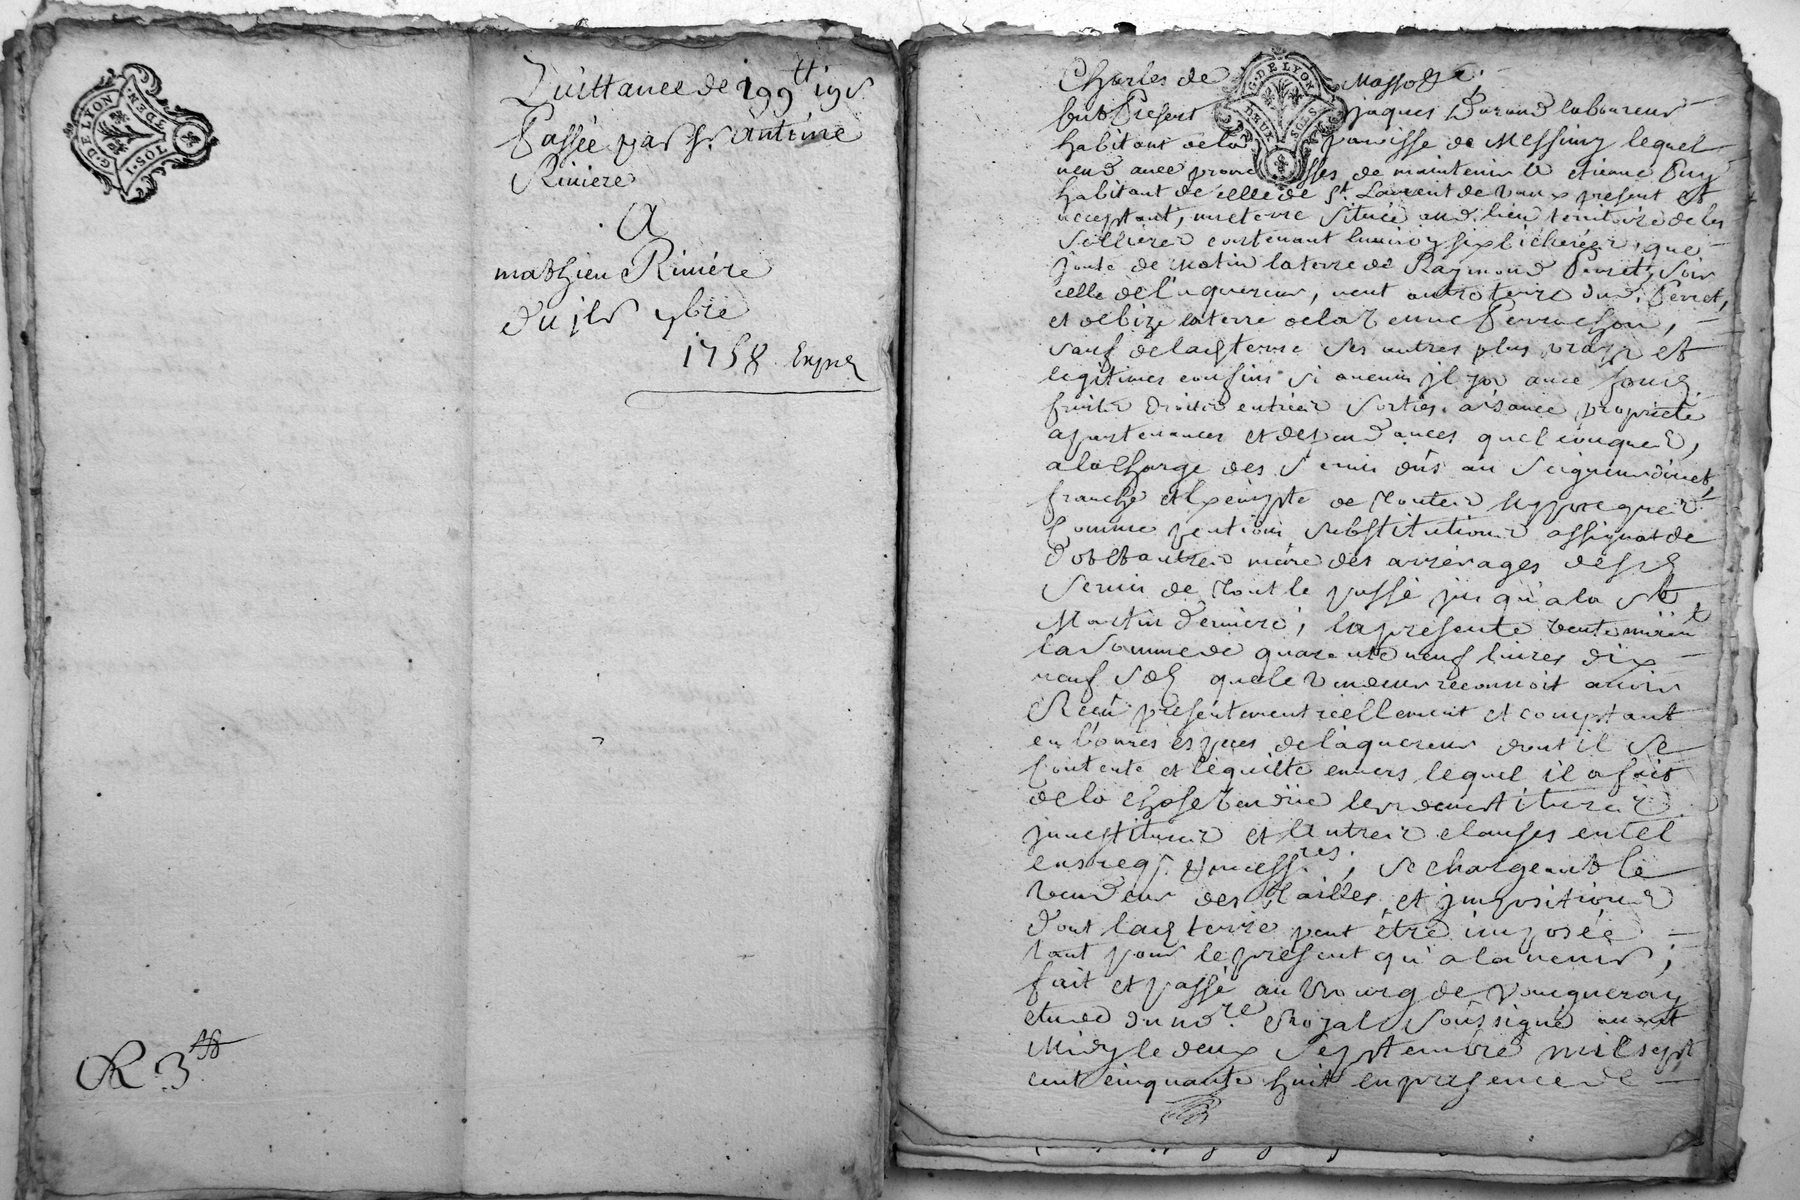 G. DE LYON
DEN.
1 SOL
Quittance de 199 tt 19 s
Passée par Sr. Antoine
Riviere
A
mathieu Riviére
Du 7bre
1758. Exped
R 3 tt
G. DE LYON
DEUX SOLS
Charles de Massot
fut Present jaques Durand laboureur
habitant de la paroisse de Messimy lequel
vend avec promesses de maintenir a etienne Puy
habitant de celle de St. Laurent de vaux present et
acceptant, une terre située aud. lieu territoire de les
contenant environ six bicherées, que
joute de Matin la terre de Raymond Perret, soir
celle de l'aquereur, vent autre terre dud. Perret,
et de bize la terre de la veuve Perrachon,
sauf de lad terre ses autres plus vrays et
legitimes confins si aucuns il y a avec fonds
fruits droits entrées sorties aisance proprieté
apartenances et dépendances quelconques,
a la charge des servis dûs au Seigneur direct,
franche et Exempte de toutes hypoteques
comme pentions substitutions assignat de
d'ot et autres même des arrérages desd
servis de tout le passé jusqu'a la St
Martin derniere; la présente vente moient
la somme de quarente neuf livres dix
neuf sols que le vendeur reconnoit avoir
Reçu présentement réellement et comptant
en bonnes espèces de l'aquereur dont il se
contente et l'equitte envers lequel il a fait
de la chose vendüe les demestitures
jnvestitures et autres clauses en tel
cas req. & necess.res, se chargeant le
vendeur des tailles et jmpositions
dont lad terre peut être imposée
tant pour le présent qu'a l'avenir;
fait et passé au bourg de vaugneray
etude du no.re Royal Soussigné avant
Midy le deux Septembre mil sept
cent cinquante huit en presence de